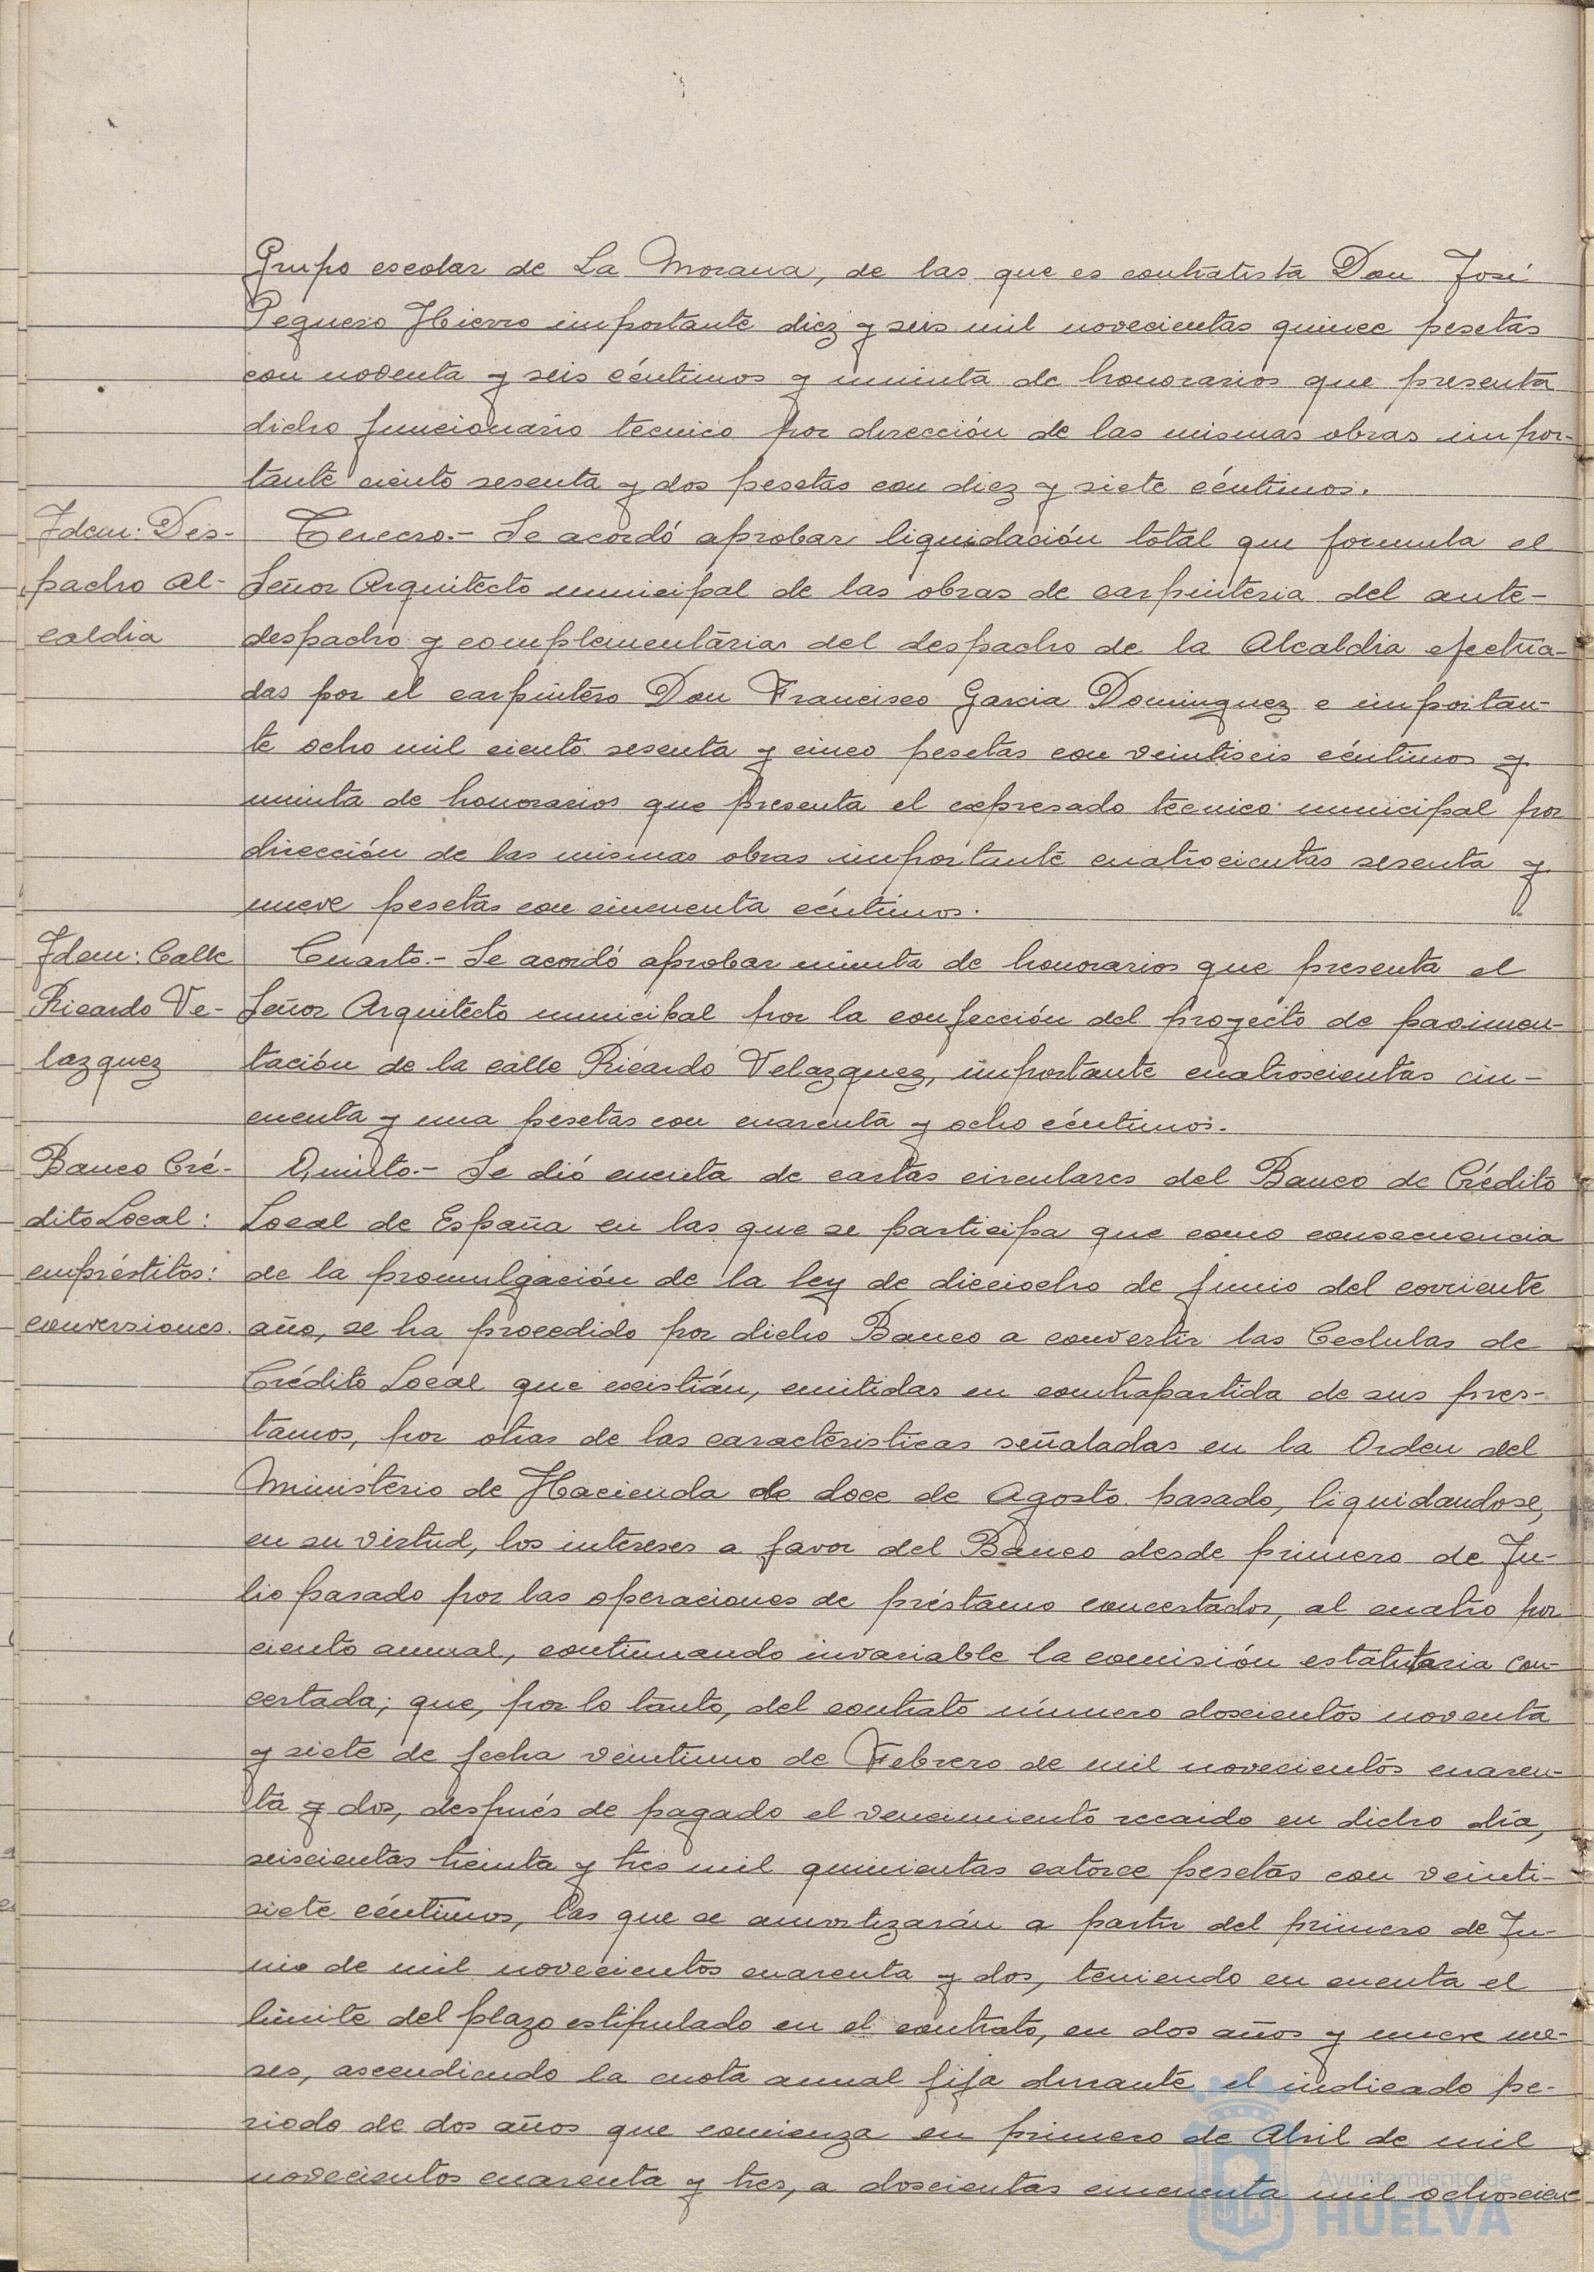 Grupo escolar de La Morana, de las que es contratista Don José
Peguero Hierro importante diez y seis mil novecientas quince pesetas
con noventa y seis céntimos y minuta de honorarios que presenta
dicho funcionario tecnico por dirección de las mismas obras impor-
tante ciento sesenta y dos pesetas con diez y siete céntimos.
Idem: Des-
pacho Al-
caldia
Tercero.- Se acordó aprobar liquidación total que formula el
Señor Arquitecto municipal de las obras de carpinteria del ante-
despacho y complementarias del despacho de la Alcaldia efectua-
das por el carpintero Don Francisco Garcia Dominguez e importan-
te ocho mil ciento sesenta y cinco pesetas con veintiseis céntimos y
minuta de honorarios que presenta el expresado tecnico municipal por
dirección de las mismas obras importante cuatrocientas sesenta y
nueve pesetas con cincuenta céntimos.
Idem: Calle
Ricardo Ve-
lazquez
Cuarto.- Se acordó aprobar minuta de honorarios que presenta el
Señor Arquitecto municipal por la confección del proyecto de pavimen-
tación de la calle Ricardo Velazquez, importante cuatroscientas cin-
cuenta y una pesetas con cuarenta y ocho céntimos.
Banco Cré-
dito Local:
empréstitos:
conversiones.
Quinto.- Se dió cuenta de cartas circulares del Banco de Crédito
Local de España en las que se participa que como consecuencia
de la promulgación de la ley de dieciocho de junio del corriente
año, se ha procedido por dicho Banco a convertir las Cedulas de
Crédito Local que existián, emitidas en contrapartida de sus pres-
tamos, por otras de las caracteristicas señaladas en la Orden del
Ministerio de Hacienda de doce de Agosto pasado, liquidandose,
en su virtud, los intereses a favor del Banco desde primero de Ju-
lio pasado por las operaciones de préstamo concertados, al cuatro por
ciento anual, continuando invariable la comisión estatutaria con-
certada; que, por lo tanto, del contrato número doscientos noventa
y siete de fecha veintiuno de Febrero de mil novecientos cuaren-
ta y dos, después de pagado el vencimiento recaido en dicho día,
seiscientas treinta y tres mil quinientas catorce pesetas con veinti-
siete céntimos, las que se amortizarán a partir del primero de Ju-
nio de mil novecientos cuarenta y dos, teniendo en cuenta el
limite del plazo estipulado en el contrato, en dos años y nueve me-
ses, ascendiendo la cuota anual fija durante el indicado pe-
riodo de dos años que comienza en primero de Abril de mil
novecientos cuarenta y tres, a doscientas cincuenta mil ochocien
Ayuntamiento de
HUELVA